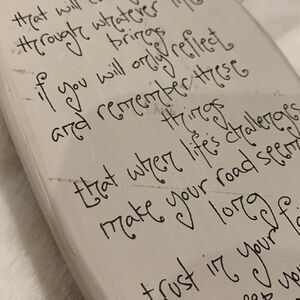 that will
through whatever life
brings
if you will only reflect
and remember these
things
that when life's challenges
make your road seem
long
trust in your